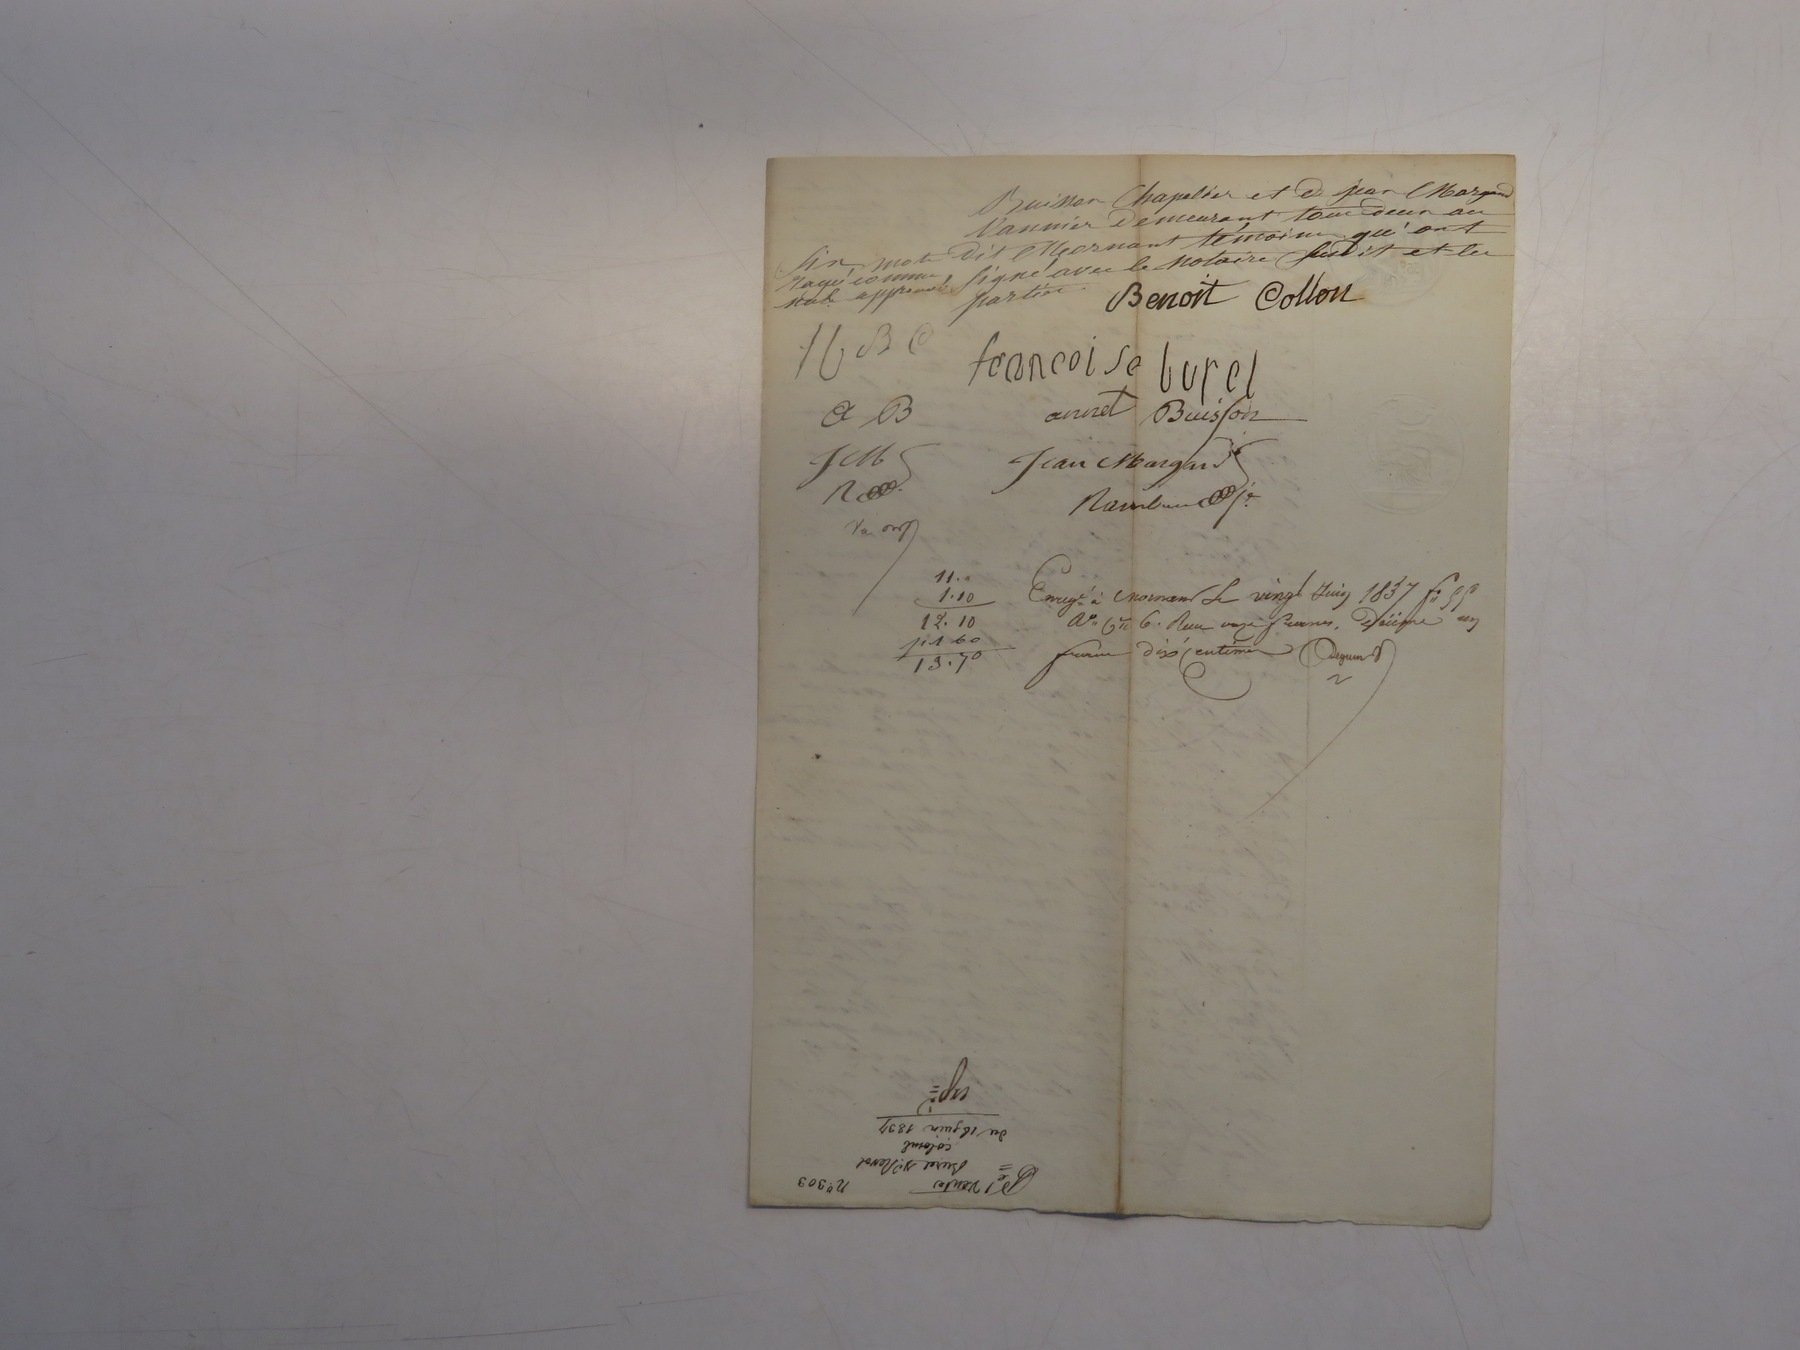 Buisson Chapelier et de jean Margand
Vannier demeurant tous deux au
dit Mornant témoins qui ont
signé avec le notaire susdit et les
parties.
Six mots
rayés comme
nuls approuvés
Benoit Collon
B C
francoise burel
A B
annet Buisson
J M
Jean Margand
R
11.0
1.10
12.10
1.60
13.70
Enregé à Mornant Le vingt Juin 1837 fo
Cse 6. Reçu onze francs, dixième un
franc dix centimes
No 303
Vente
Burel Ve
du 18 juin 1837